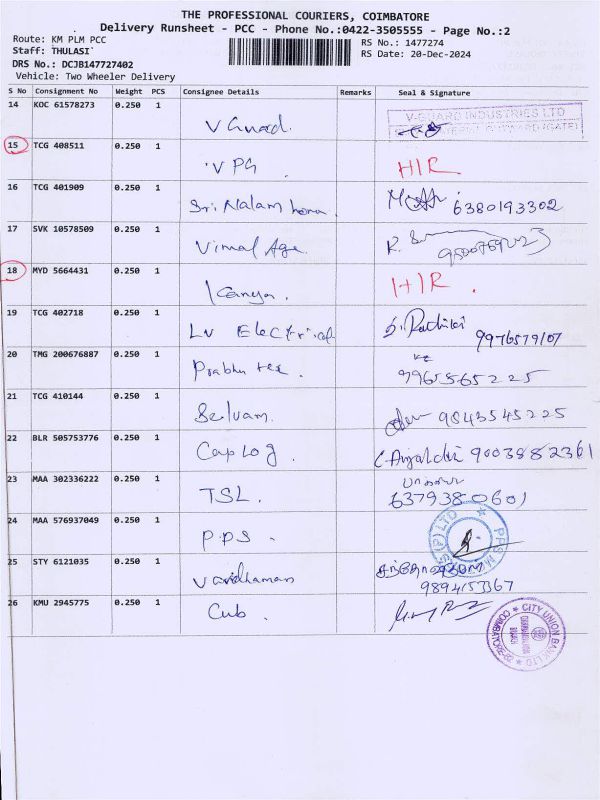 THE PROFESSIONAL COURIERS, COIMBATORE
Delivery Runsheet - PCC - Phone No.:0422-3505555 - Page No.:2
Route: KM PLM PCC
RS No.: 1477274
Staff: THULASI
RS Date: 20-Dec-2024
DRS No.: DCJB147727402
Vehicle: Two Wheeler Delivery
S No Consignment No Weight PCS Consignee Details Remarks Seal & Signature
14 KOC 61578273 0.250 1 V Guard. V-GUARD INDUSTRIES LTD
15 TCG 408511 0.250 1 VPG HIR
16 TCG 401909 0.250 1 Sri Nalam 6380193302
17 SVK 10578509 0.250 1 Vimal Age.
18 MYD 5664431 0.250 1 Kanya. HIR.
19 TCG 402718 0.250 1 LV Electrical 9976579107
20 TMG 200676887 0.250 1 Prabhu tex. 9965565225
21 TCG 410144 0.250 1 Selvam. 9843545225
22 BLR 505753776 0.250 1 Cap Log. 9003882361
23 MAA 302336222 0.250 1 TSL. 6379380601
24 MAA 576937049 0.250 1 PPS. (P) LTD
25 STY 6121035 0.250 1 Vardhaman 9894153367
26 KMU 2945775 0.250 1 Cub. CITY UNION BANK LTD